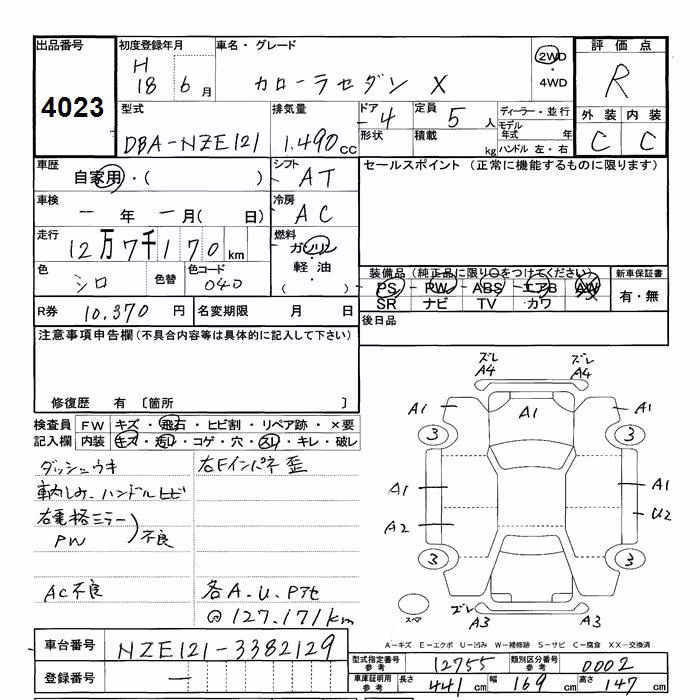 出品番号 初度登録年月 車名・グレード 2WD 評価点
4023 H 18 6月 カローラセダン X ・4WD R
型式 排気量 ドア 4 定員 5人 ディーラー・並行 外装 内装
DBA-NZE121 1.490cc 形状 積載 kg モデル年式 年 C C
ハンドル 左・右
車歴 シフト セールスポイント (正常に機能するものに限ります)
自家用・( ) AT
車検 冷房
一年 一月( 日) AC
走行 燃料
12万7千170km ガソリン・軽油・( )
色 色替 色コード 装備品(純正品に限り○をつけてください) 新車保証書
シロ 040 PS・PW・ABS・エアB・AW 有・無
SR ナビ TV カワ
R券 10.370円 名変期限 月 日 後日品
注意事項申告欄(不具合内容等は具体的に記入して下さい)
修復歴 有 〔箇所 〕
検査員 FW キズ・飛石・ヒビ割・リペア跡・×要
記入欄 内装 キズ・汚レ・コゲ・穴・スレ・キレ・破レ
ダッシュウキ 右Fインパネ歪
車内しみ、ハンドルヒビ
右電格ミラー
PW 不良
AC不良 各A.U.Pアセ
@127.171km
ズレ A4 ズレ A4
A1 A1 A1
3 3
A1 A1
A2 U2
3 3
スペア ズレ A3 A3
A-キズ E-エクボ U-凹み W-補修跡 S-サビ C-腐食 XX-交換済
車台番号 NZE121-3382129
型式指定番号 参考 12755 類別区分番号 参考 0002
登録番号 一
車庫証明用 参考 長さ 441cm 幅 169cm 高さ 147cm